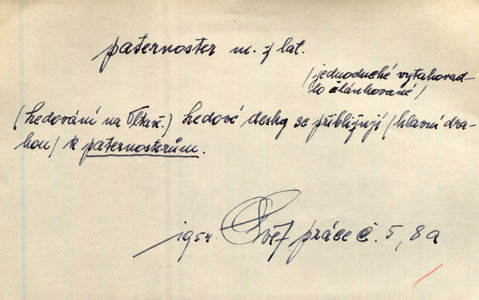 paternoster m. z lat.
/jednoduché vytahovad-
lo článkované/
/Ledování na Vltavě./ Ledové desky se přibližují /hlavní dra-
hou/ k paternosterům.
1954 Svět práce č. 5, 8a